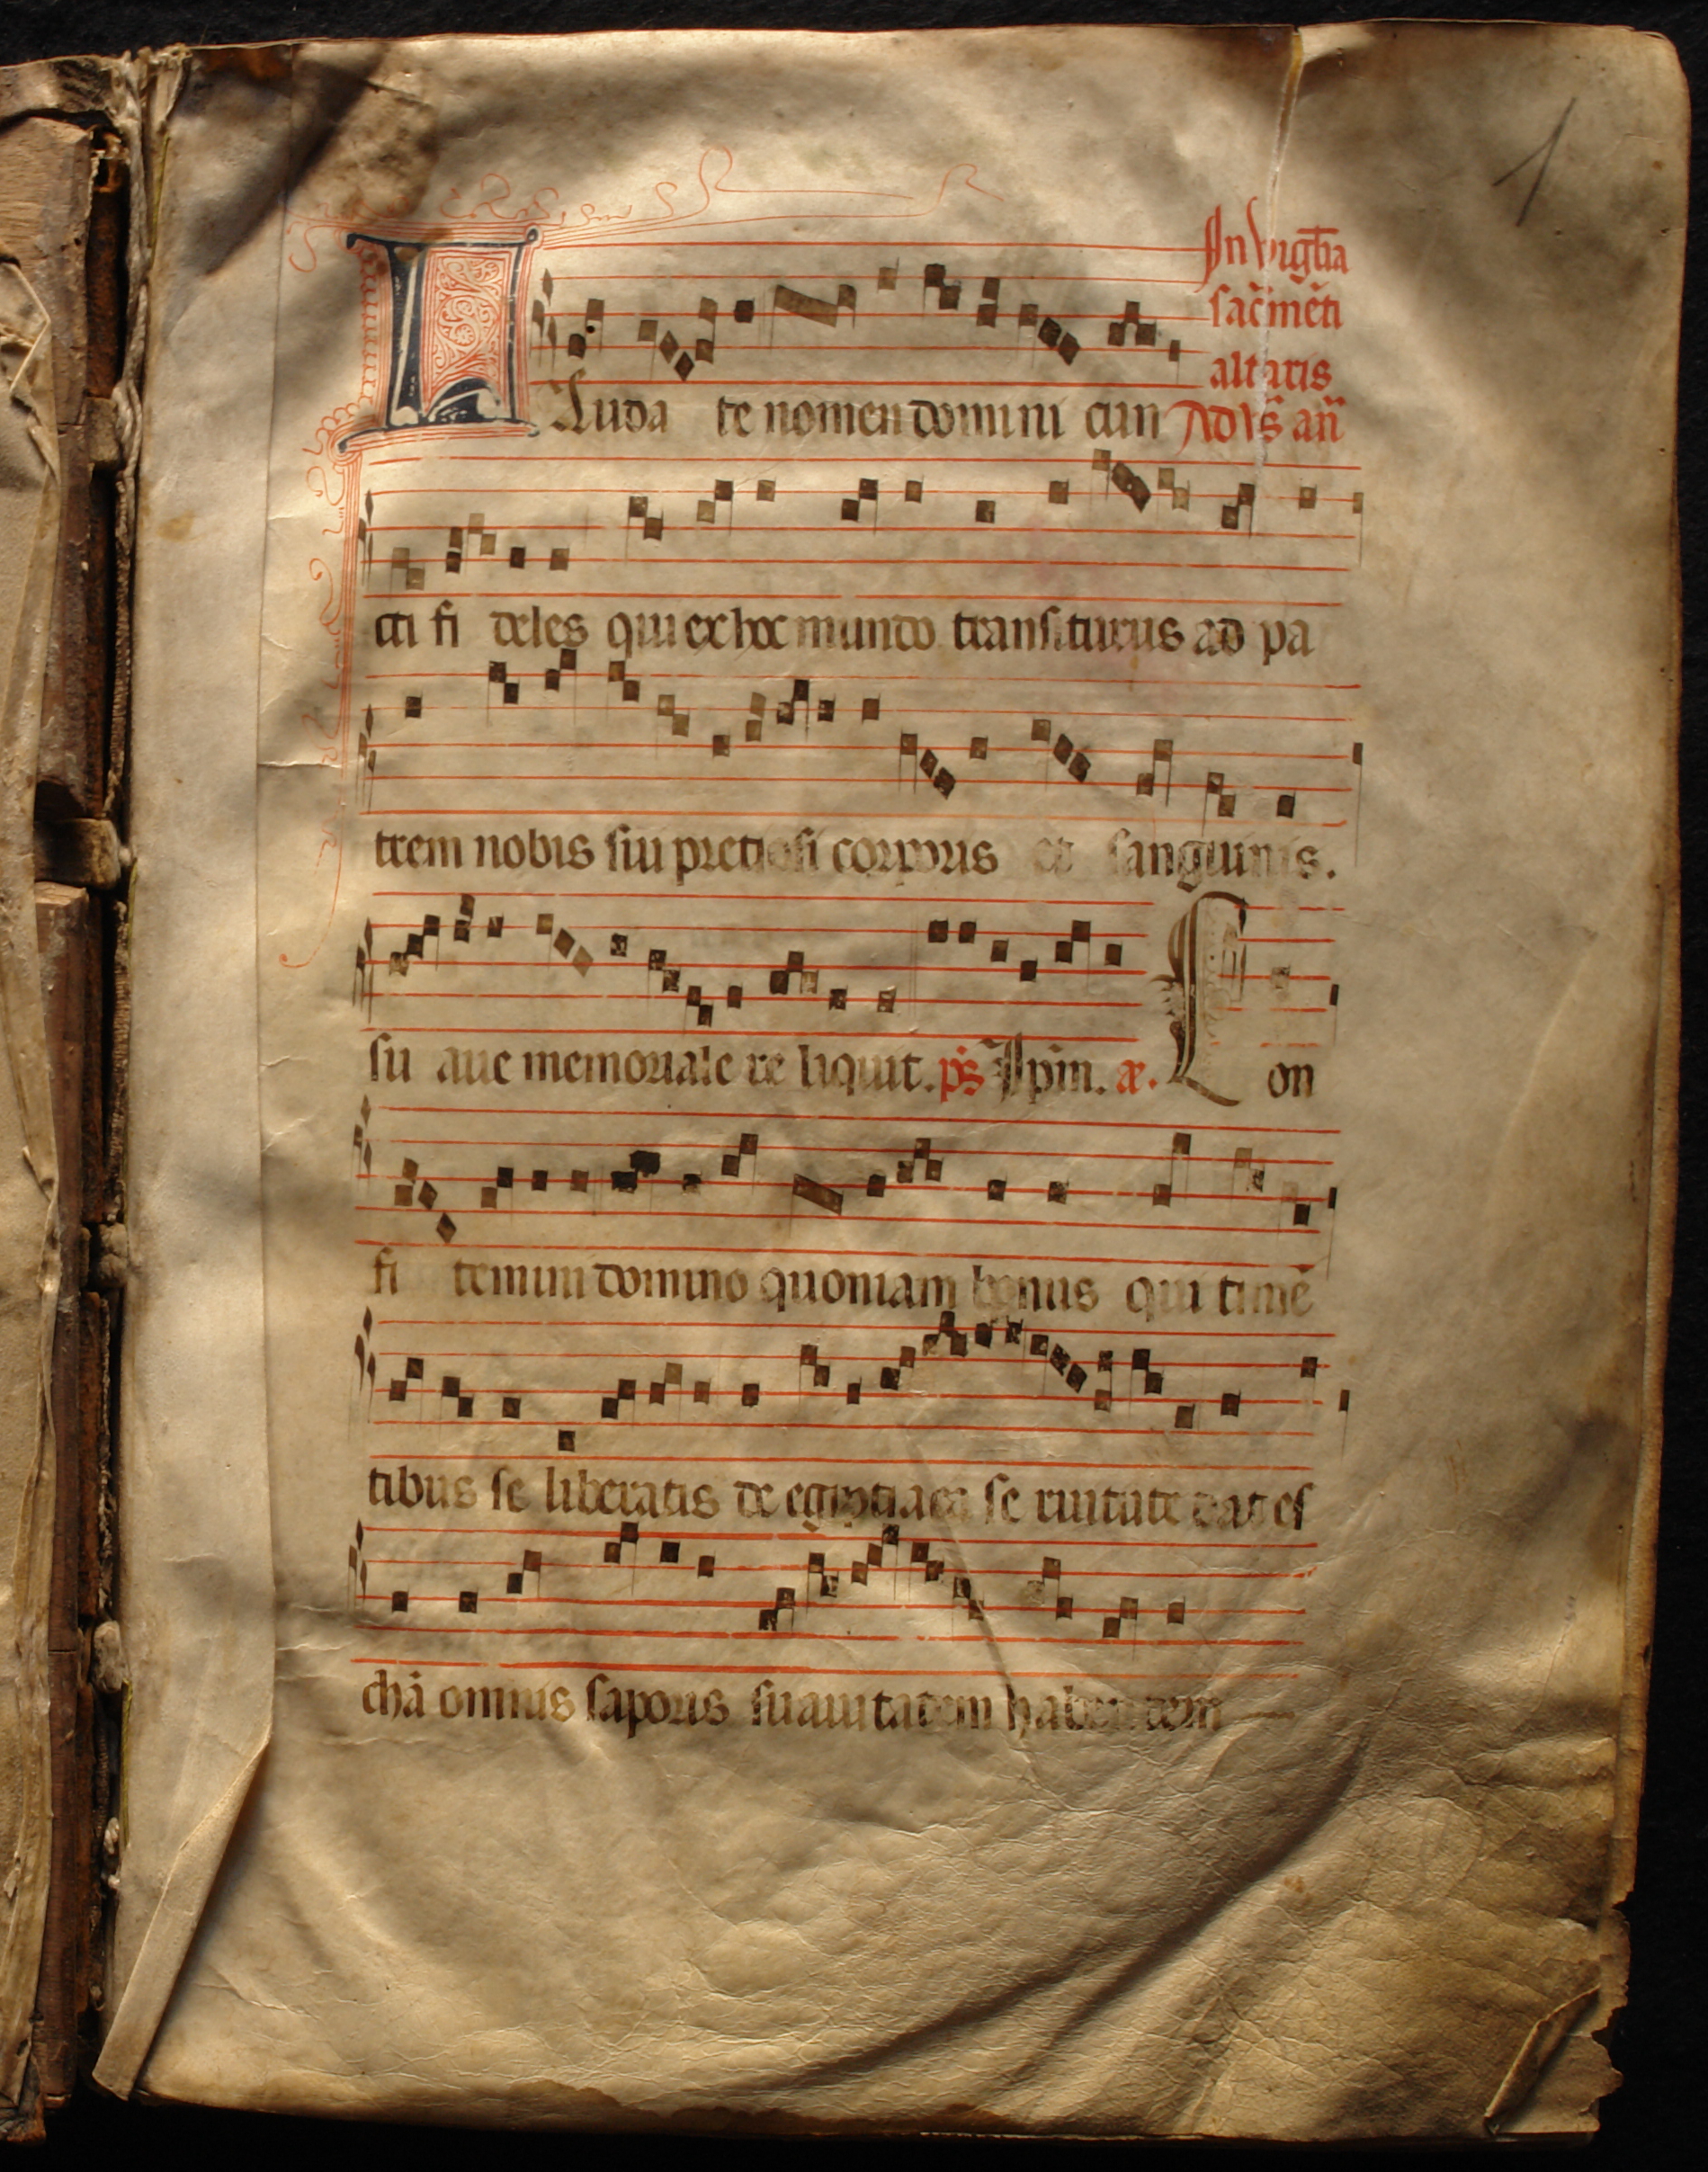 1
In vigl̄ia
sac̄mēti
altaris
Ad vs̄ an̄
Lauda te nomen domini cun
cti fi deles qui ex hoc mundo transiturus ad pa
trem nobis sui pretiosi corporis et sanguinis.
su aue memoriale re liquit. ps̄ Ipm̄. ae. Con
fi temini domino quoniam bonus qui timē
tibus se liberatis de egiptiaca se ruitute dat es
chā omnis saporis suauitatem habentem